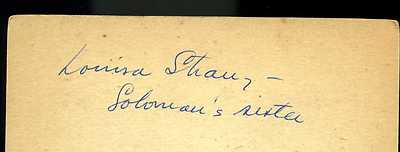 Louisa Strauz -
Solomon's sister